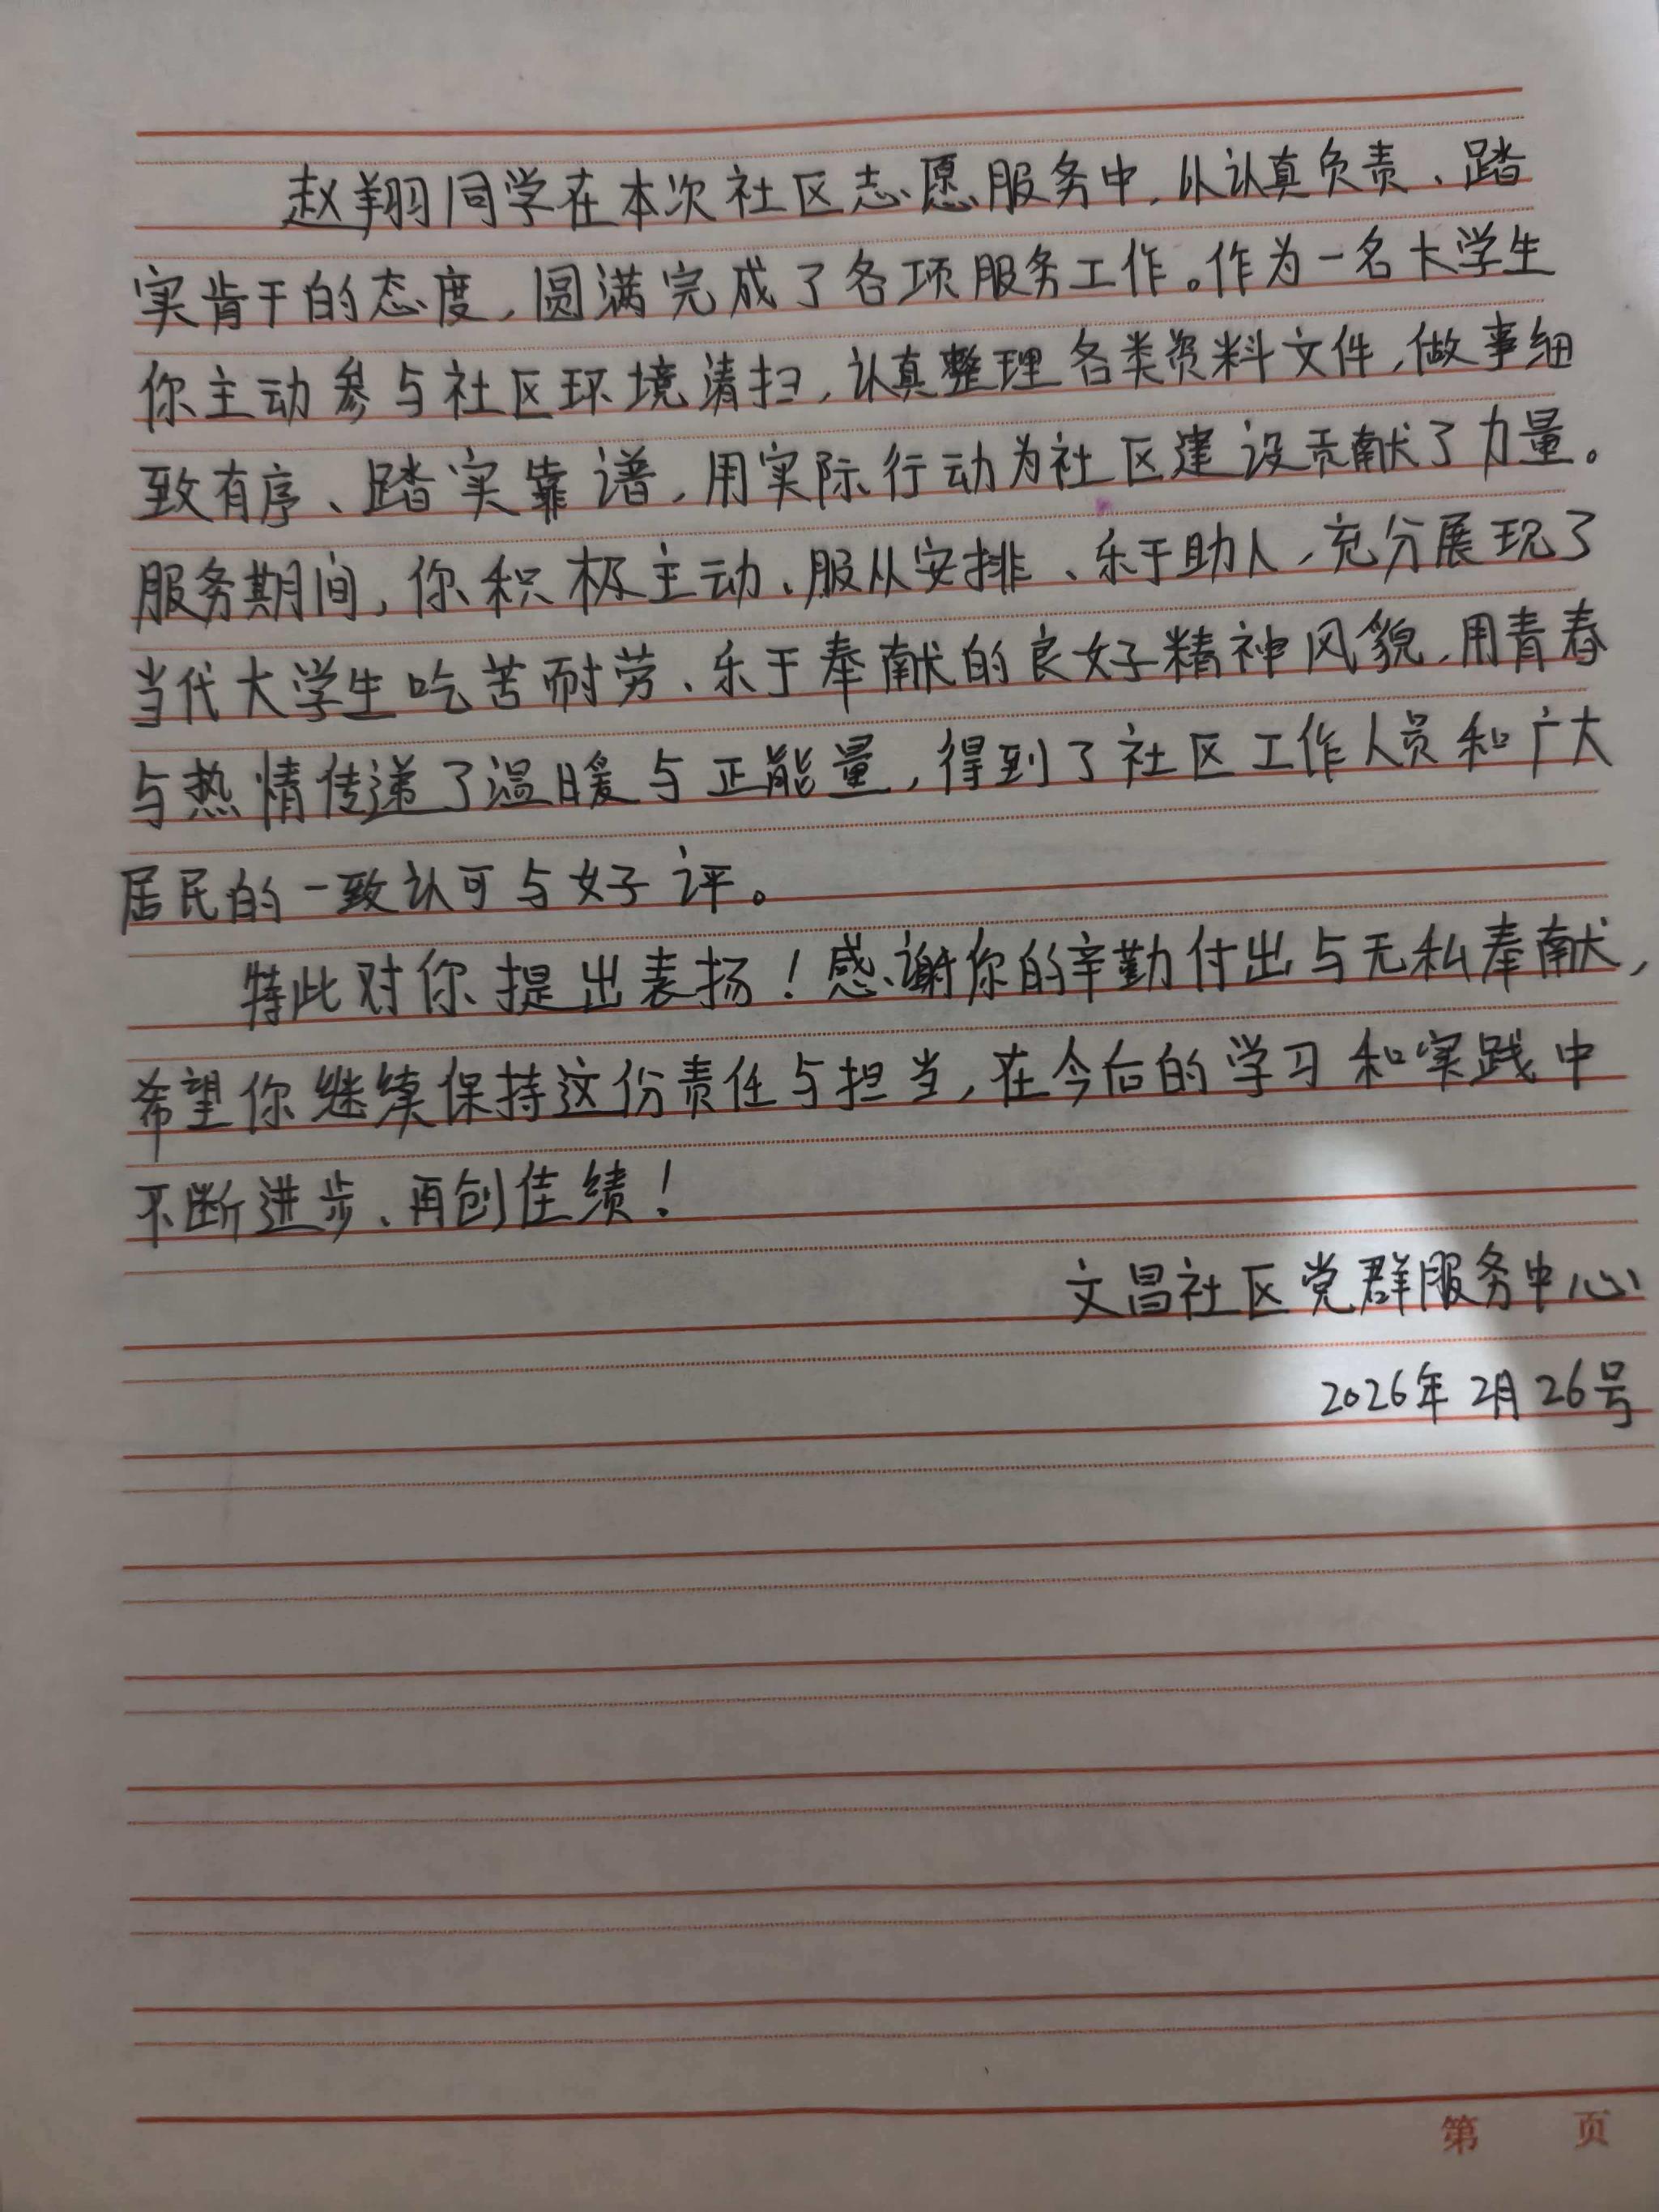 赵翔同学在本次社区志愿服务中，以认真负责、踏
实肯干的态度，圆满完成了各项服务工作。作为一名大学生
你主动参与社区环境清扫，认真整理各类资料文件，做事细
致有序、踏实靠谱，用实际行动为社区建设贡献了力量。
服务期间，你积极主动、服从安排、乐于助人，充分展现了
当代大学生吃苦耐劳、乐于奉献的良好精神风貌，用青春
与热情传递了温暖与正能量，得到了社区工作人员和广大
居民的一致认可与好评。
特此对你提出表扬！感谢你的辛勤付出与无私奉献，
希望你继续保持这份责任与担当，在今后的学习和实践中
不断进步、再创佳绩！
文昌社区党群服务中心
2026年2月26号
第 页